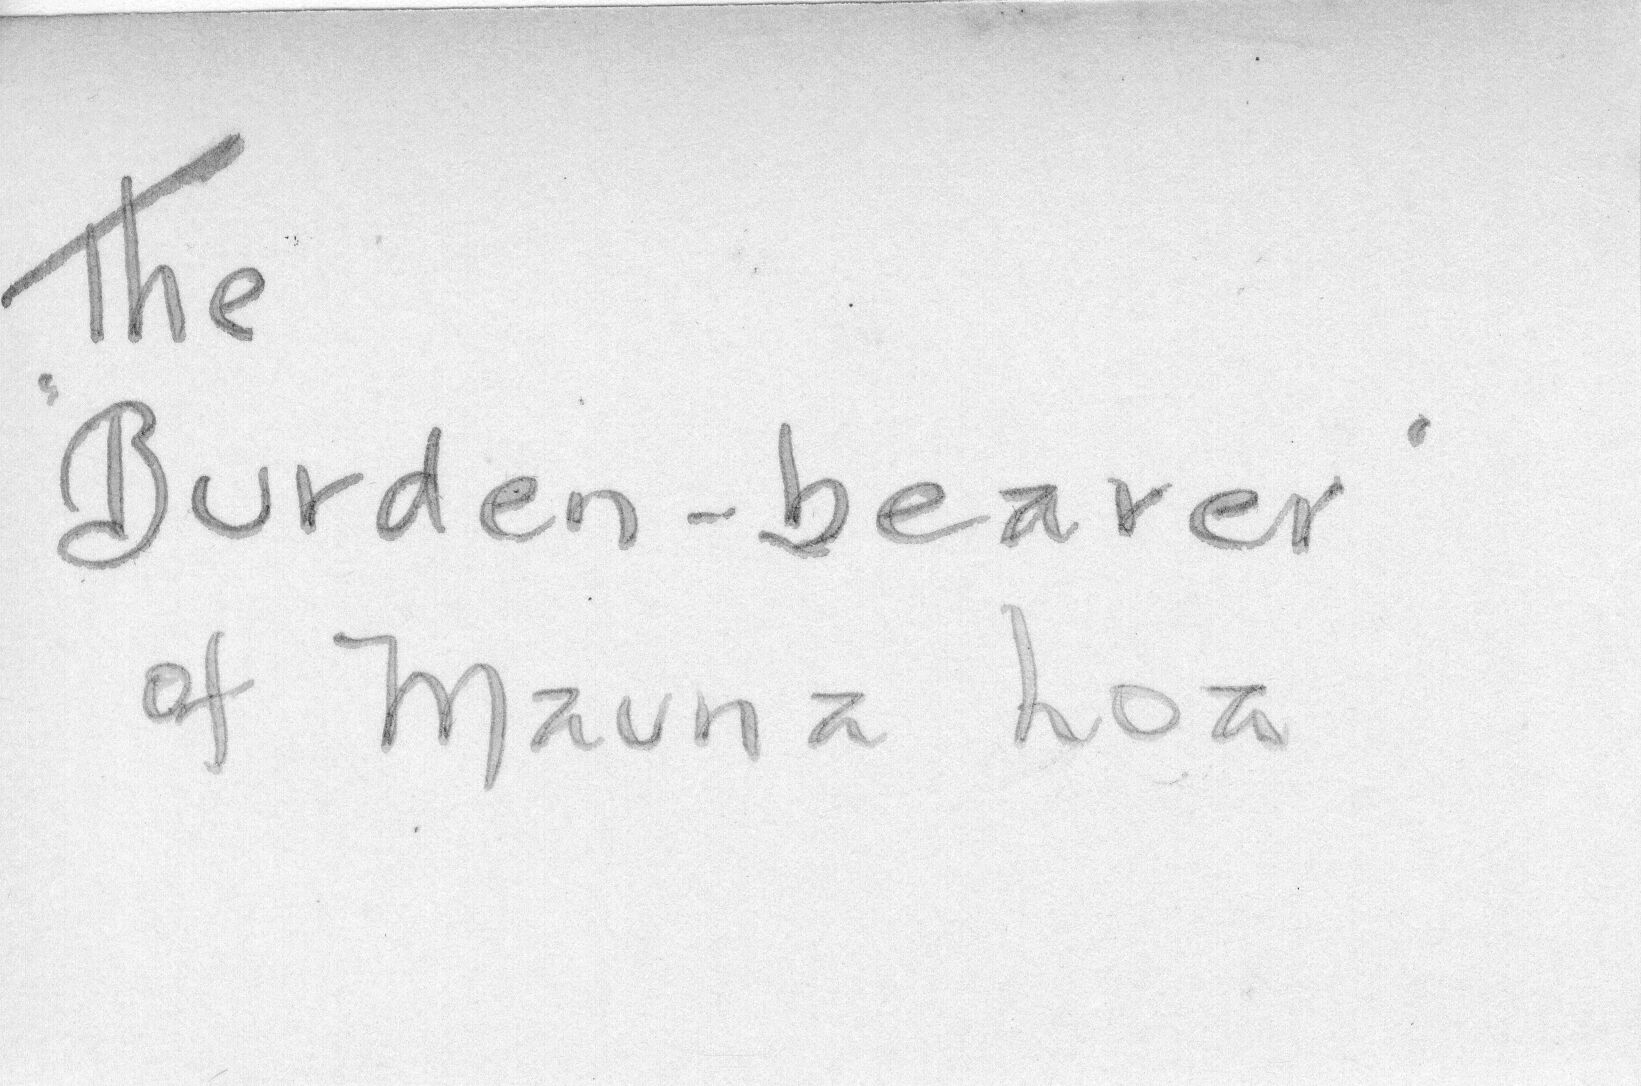 The
"Burden-bearer"
of Mauna Loa